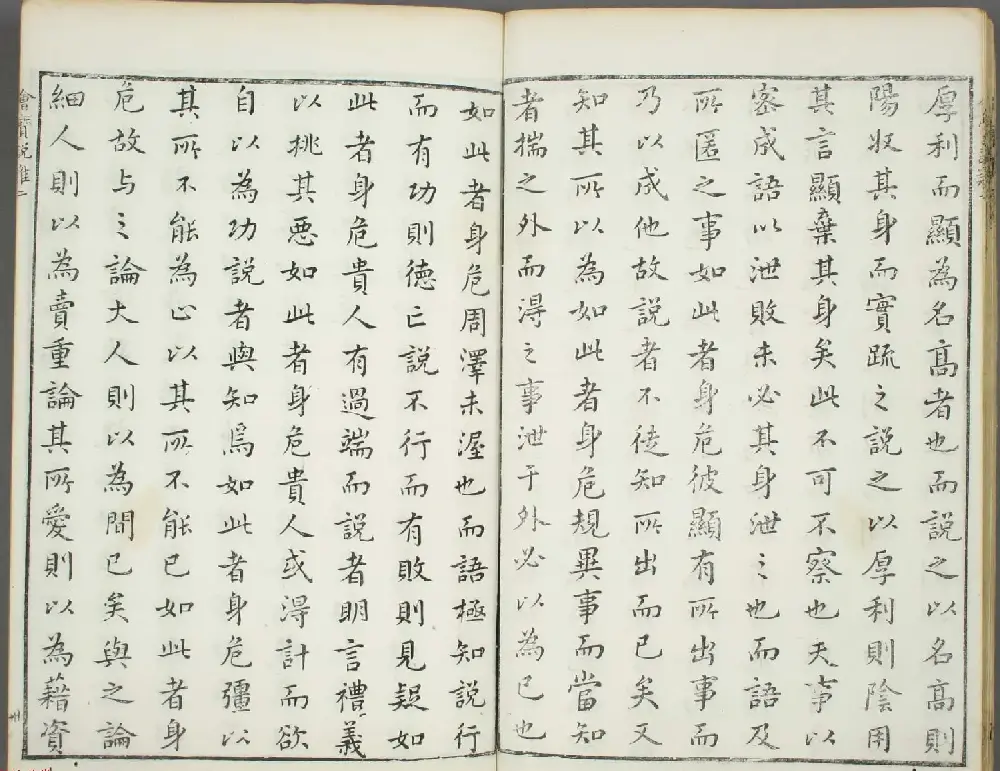 厚利而顯為名高者也而說之以名高則
陽收其身而實踈之說之以厚利則陰用
其言顯棄其身矣此不可不察也夫事以
密成語以泄敗未必其身泄之也而語及
所匿之事如此者身危彼顯有所出事而
乃以成他故說者不徒知所出而已矣又
知其所以為如此者身危規異事而當知
者揣之外而得之事泄于外必以為己也
如此者身危周澤未渥也而語極知說行
而有功則德亡說不行而有敗則見疑如
此者身危貴人有過端而說者明言禮義
以挑其惡如此者身危貴人或得計而欲
自以為功說者與知焉如此者身危彊以
其所不能為止以其所不能已如此者身
危故与之論大人則以為間已矣與之論
細人則以為賣重論其所愛則以為藉資